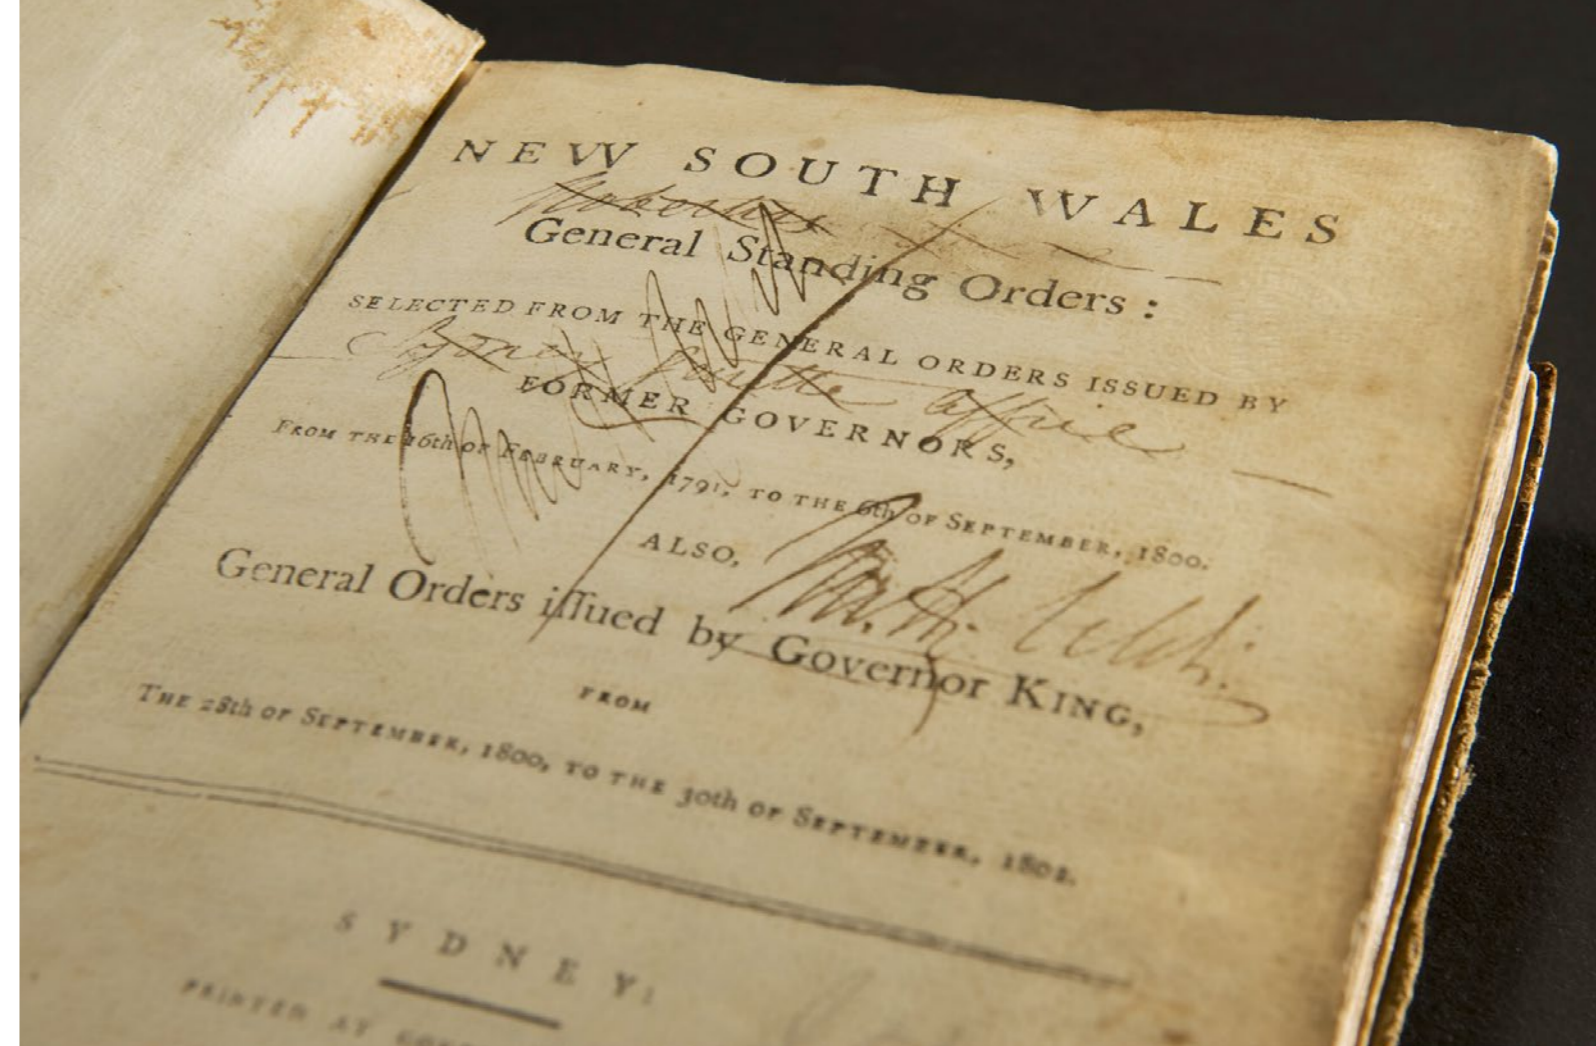 NEW SOUTH WALES
General Standing Orders:
SELECTED FROM THE GENERAL ORDERS ISSUED BY
Sydney Gazette Office
FORMER GOVERNORS,
FROM THE 16th OF FEBRUARY, 1791, TO THE 6th OF SEPTEMBER, 1800.
ALSO,
General Orders iſſued by Governor KING,
FROM
THE 28th OF SEPTEMBER, 1800, TO THE 30th OF SEPTEMBER, 1802.
SYDNEY:
PRINTED AT